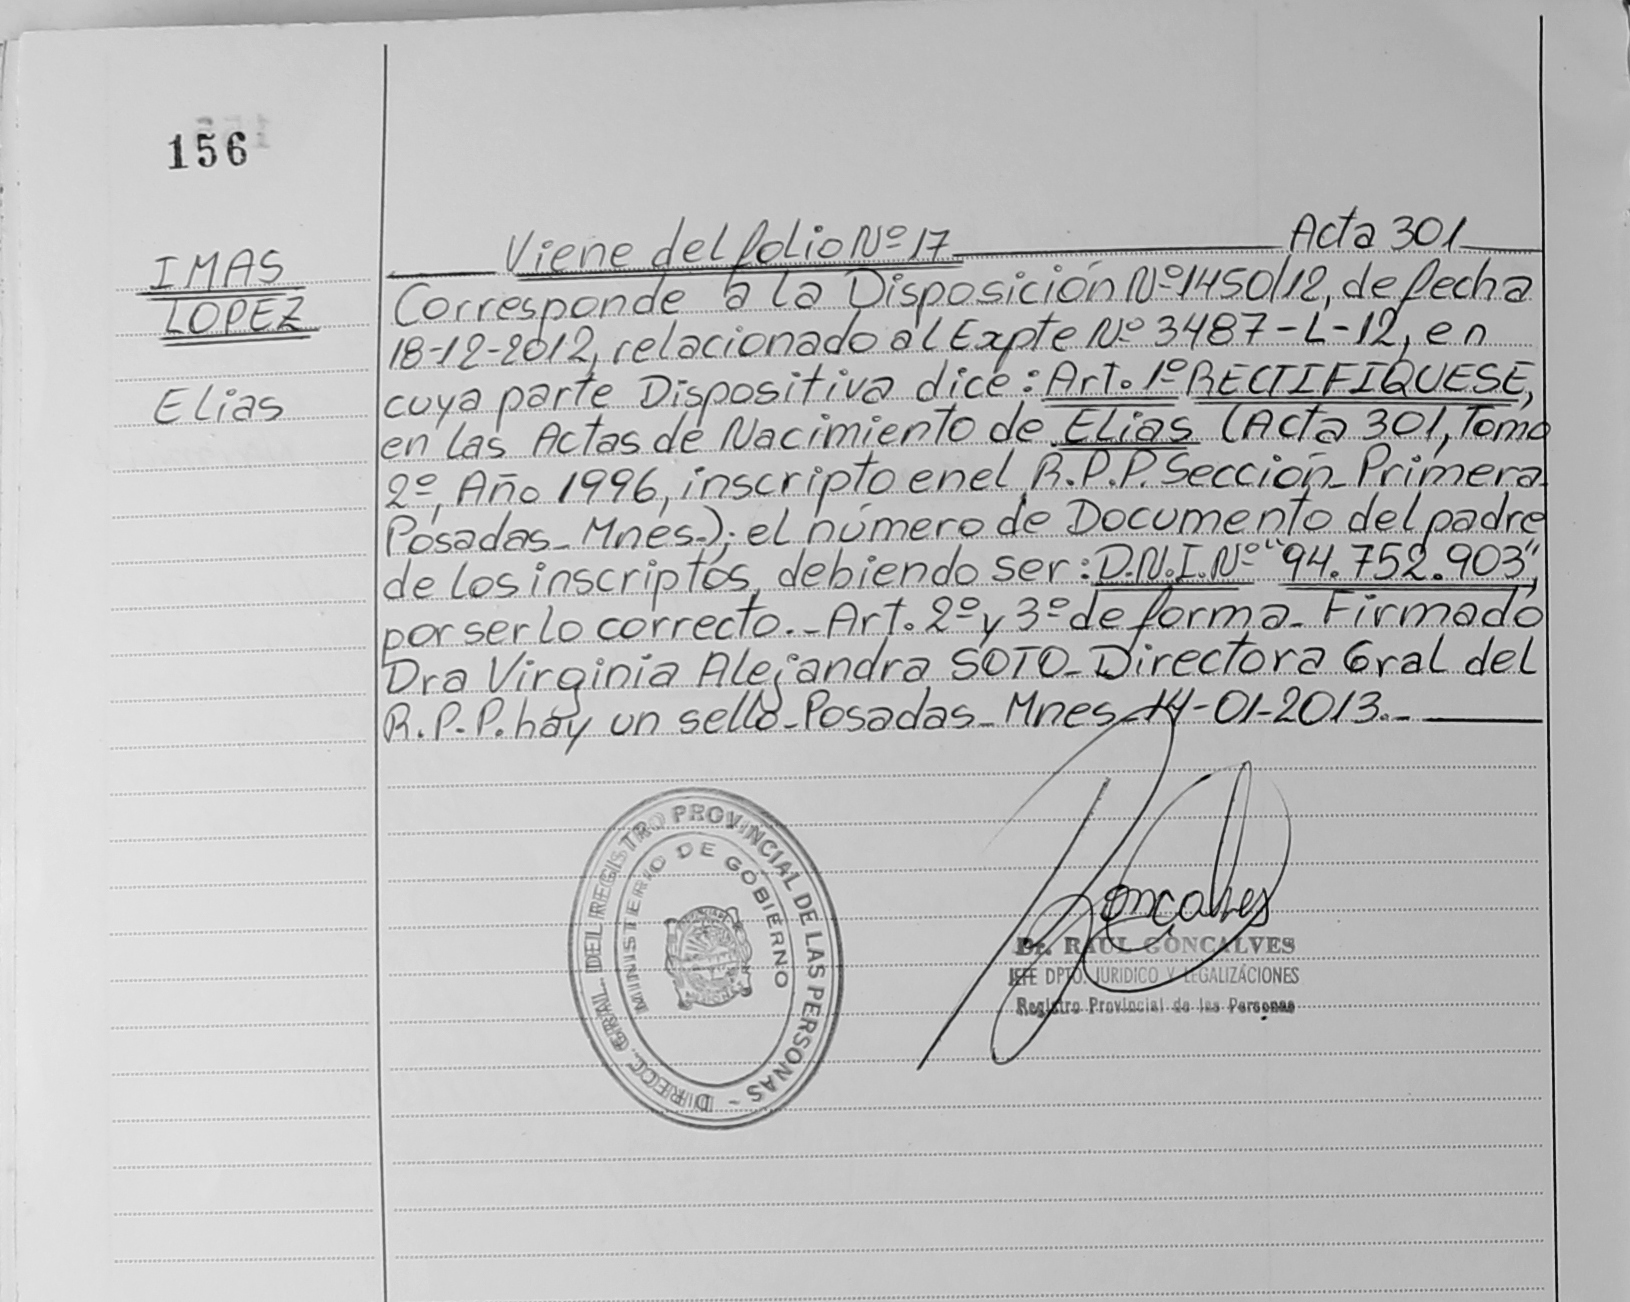 156
IMAS
LOPEZ
Elias
Viene del folio Nº 17 Acta 301
Corresponde a la Disposición Nº 1450/12, de fecha
18-12-2012, relacionado al Expte Nº 3487-L-12, en
cuya parte Dispositiva dice: Art. 1º RECTIFIQUESE,
en las Actas de Nacimiento de Elias (Acta 301, Tomo
2º, Año 1996, inscripto en el R.P.P. Sección Primera
Posadas-Mnes.); el número de Documento del padre
de los inscriptos, debiendo ser: D.N.I. Nº "94.752.903",
por ser lo correcto.- Art. 2º y 3º de forma- Firmado
Dra Virginia Alejandra SOTO-Directora Gral del
R.P.P. hay un sello-Posadas-Mnes-14-01-2013.-
DIRECC. GRAL. DEL REGISTRO PROVINCIAL DE LAS PERSONAS -
MINISTERIO DE GOBIERNO
Goncalves
Dr. RAUL GONCALVES
JEFE DPTO. JURIDICO Y LEGALIZACIONES
Registro Provincial de las Personas